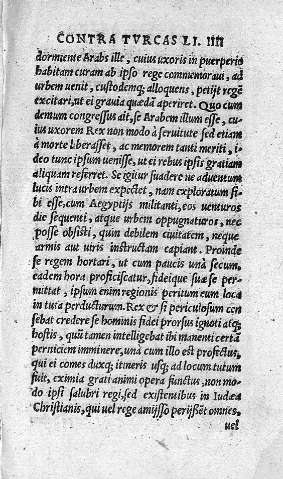 CONTRA TVRCAS LI. IIII
dormiente Arabs ille, cuius uxoris in puerperio
habitam curam ab ipso rege commemoravi, ad
urbem uenit, custodemq; alloquens, petijt regē
excitari, ut ei grauia quædā aperiret. Quo cum
demum congressus ait, se Arabem illum esse, cu
ius uxorem Rex non modo à seruitute sed etiam
à morte liberasset, ac memorem tanti meriti, i-
deo tunc ipsum uenisse, ut ei rebus ipsis gratiam
aliquam referret. Se igitur suadere ne aduentum
lucis intra urbem expectet, nam exploratum si-
bi esse, cum Aegyptijs militanti, eos uenturos
die sequenti, atque urbem oppugnaturos, nec
posse obsisti, quin debilem ciuitatem, neque
armis aut uiris instructam capiant. Proinde
se regem hortari, ut cum paucis unà secum,
eadem hora proficiscatur, fideique suæ se per-
mittat, ipsum enim regionis peritum eum loca
in tuta perducturum. Rex & si periculosum cen
sebat credere se hominis fidei prorsus ignoti atq;
hostis, quū tamen intelligebat ibi manenti certā
perniciem imminere, una cum illo est profectus,
qui ei comes duxq; itineris usq; ad locum tutum
fuit, eximia grati animi opera functus, non mo-
do ipsi salubri regi, sed existentibus in Iudæa
Christianis, qui uel rege amisso perijssēt omnes,
uel